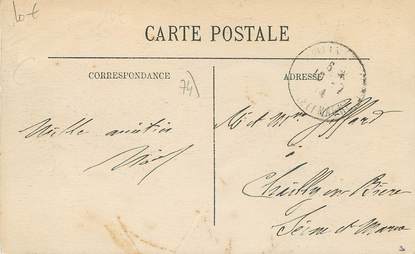 Lot
CARTE POSTALE
CORRESPONDANCE
ADRESSE
74)
Mille amitiés
M et Mme
à
Chailly en Bière
Seine et Marne